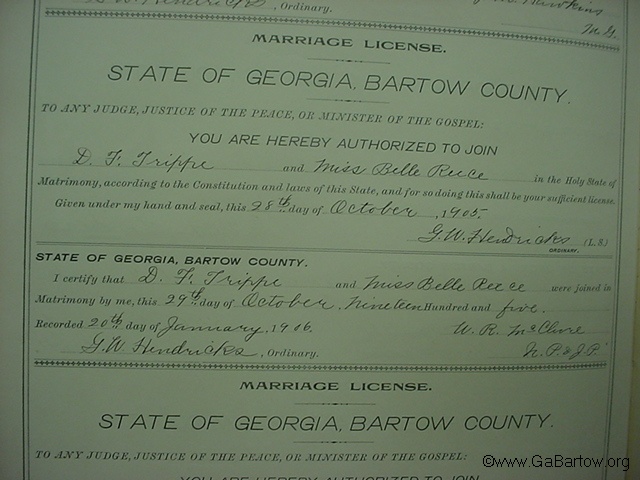 G. W. Hendricks, Ordinary. Hawkins
M. G.
MARRIAGE LICENSE.
STATE OF GEORGIA, BARTOW COUNTY.
TO ANY JUDGE, JUSTICE OF THE PEACE, OR MINISTER OF THE GOSPEL:
YOU ARE HEREBY AUTHORIZED TO JOIN
D. F. Trippe and Miss Belle Reece in the Holy State of
Matrimony, according to the Constitution and laws of this State, and for so doing this shall be your sufficient license.
Given under my hand and seal, this 28th day of October, 1905.
G. W. Hendricks (L. S.)
ORDINARY.
STATE OF GEORGIA, BARTOW COUNTY.
I certify that D. F. Trippe and Miss Belle Reece were joined in
Matrimony by me, this 29th day of October, Nineteen Hundred and five.
Recorded 20th day of January, 1906. W. R. McClure
G. W. Hendricks, Ordinary. N. P. & J. P.
MARRIAGE LICENSE.
STATE OF GEORGIA, BARTOW COUNTY.
TO ANY JUDGE, JUSTICE OF THE PEACE, OR MINISTER OF THE GOSPEL:
YOU ARE HEREBY AUTHORIZED TO JOIN
©www.GaBartow.org